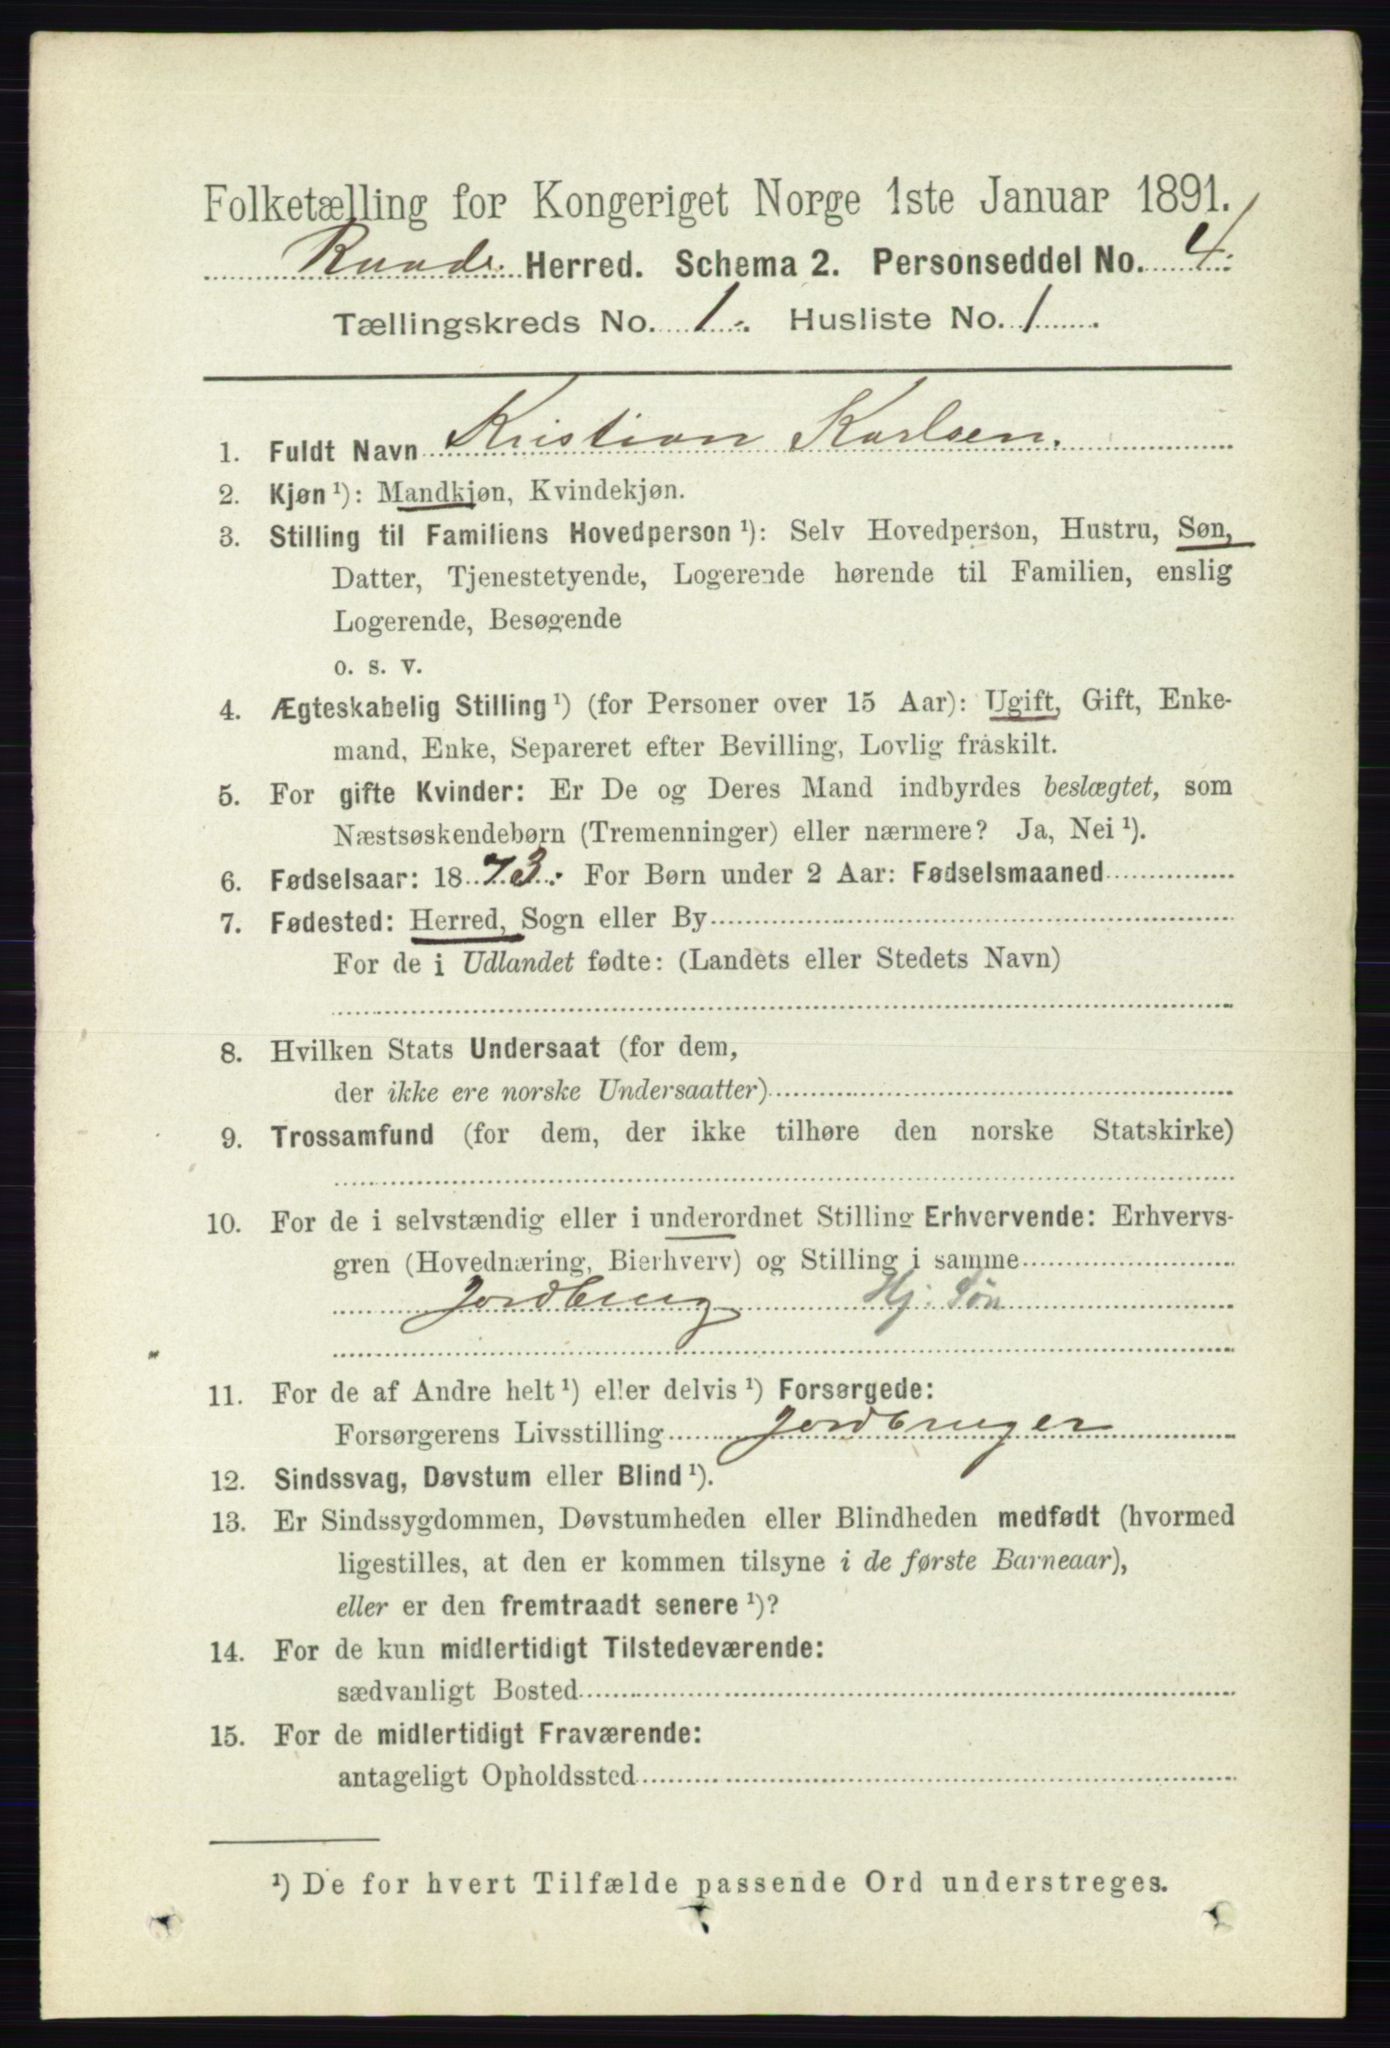 Folketælling for Kongeriget Norge 1ste Januar 1891.
Raade Herred. Schema 2. Personseddel No. 4.
Tællingskreds No. 1. Husliste No. 1.
1. Fuldt Navn Kristian Karlsen.
2. Kjøn ¹): Mandkjøn, Kvindekjøn.
3. Stilling til Familiens Hovedperson ¹): Selv Hovedperson, Hustru, Søn,
Datter, Tjenestetyende, Logerende hørende til Familien, enslig
Logerende, Besøgende
o. s. v.
4. Ægteskabelig Stilling ¹) (for Personer over 15 Aar): Ugift, Gift, Enke-
mand, Enke, Separeret efter Bevilling, Lovlig fraskilt.
5. For gifte Kvinder: Er De og Deres Mand indbyrdes beslægtet, som
Næstsøskendebørn (Tremenninger) eller nærmere? Ja, Nei ¹).
6. Fødselsaar: 1873. For Børn under 2 Aar: Fødselsmaaned
7. Fødested: Herred, Sogn eller By
For de i Udlandet fødte: (Landets eller Stedets Navn)
8. Hvilken Stats Undersaat (for dem,
der ikke ere norske Undersaatter)
9. Trossamfund (for dem, der ikke tilhøre den norske Statskirke)
10. For de i selvstændig eller i underordnet Stilling Erhvervende: Erhvervs-
gren (Hovednæring, Bierhverv) og Stilling i samme
Jordbrug Hj. Søn
11. For de af Andre helt ¹) eller delvis ¹) Forsørgede:
Forsørgerens Livsstilling Jordbruger
12. Sindssvag, Døvstum eller Blind ¹).
13. Er Sindssygdommen, Døvstumheden eller Blindheden medfødt (hvormed
ligestilles, at den er kommen tilsyne i de første Barneaar),
eller er den fremtraadt senere ¹)?
14. For de kun midlertidigt Tilstedeværende:
sædvanligt Bosted
15. For de midlertidigt Fraværende:
antageligt Opholdssted
¹) De for hvert Tilfælde passende Ord understreges.